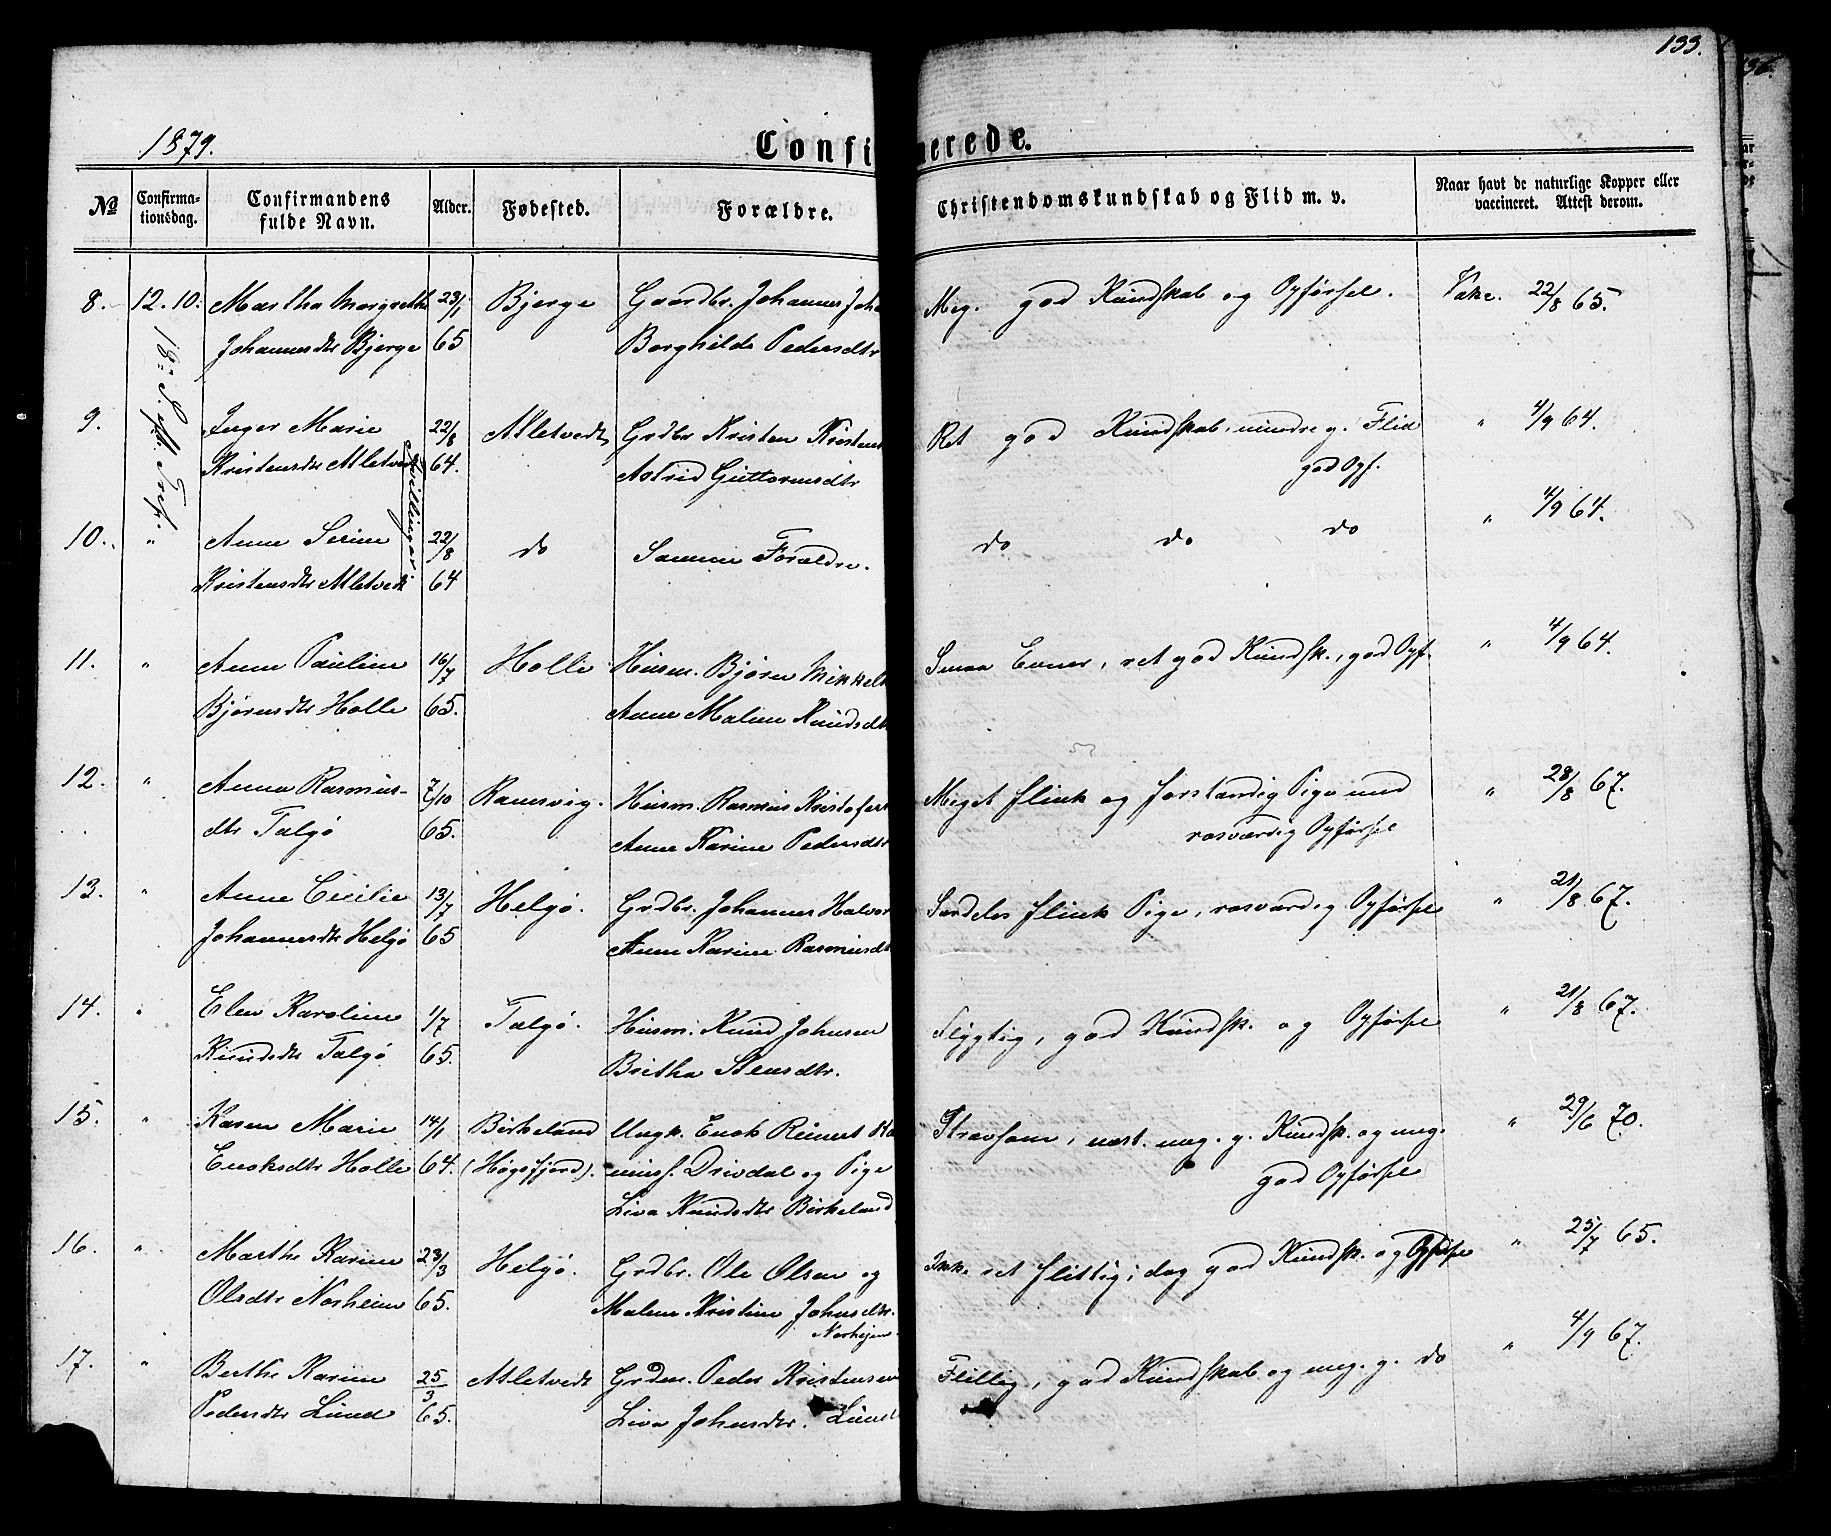 133.
1879.
Confirmerede.
№
Confirma-
tionsdag.
Confirmandens
fulde Navn.
Alder.
Fødested.
Forældre.
Christendomskundskab og Flid m. v.
Naar havt de naturlige Kopper eller
vaccineret. Attest derom.
8. 12.10. Martha Margrethe 23/1 Bjerge Gaardbr. Johannes Meg. god Kundskab og Opførsel. Vakc. 22/8 65.
Johannesdtr Bjerge 65 Borghilde Pedersdtr
18: S. e. Tref.
9. Inger Marie 22/8 Atletvedt Grdbr Kristen Kristens Ret god Kundskab, mindre g. Flid " 4/9 64.
Kristensdtr Atletvedt 64. Astrid Guttormsdtr god Opf.
Tvillinger
10. " Anne Serine 22/8 do Samme Forældre. do do do " 4/9 64.
Kristensdtr Atletvedt 64
11. " Anne Pauline 16/7 Halle Husm. Bjørn Mikkels Smaa Evner, ret god Kundsk., god Opf. " 4/9 64.
Bjørnsdtr Halle 65. Anne Malene Knudsdtr
12. " Anna Rasmus- 7/10 Ramsvig. Husm. Rasmus Kristofers Meget flink og forstandig Pige med " 28/8 67.
dtr Talgø 65. Anne Karine Pedersdtr rosværdig Opførsel
13. " Anne Cecilie 13/7 Helgø. Grdbr. Johannes Halvor Særdeles flink Pige, rosværdig Opførsel " 21/8 67.
Johannesdtr Helgø 65 Anne Karine Rasmusdt
14. " Elen Karoline 1/7 Talgø. Husm. Knud Johnsen Flygtig, god Kundsk. og Opførsel " 21/8 67.
Knudsdtr Talgø 65. Britha Stensdtr.
15. " Karen Marie 14/1 Birkeland Ungk. Enok Reinert Stræbsom, næst. meg. g. Kundsk. og meg. " 29/6 70.
Enoksdtr Halle 64. (Høgsfjord). Drivdal og Pige god Opførsel
Liva Knudsdtr Birkeland
16. " Marthe Karine 23/3 Helgø. Grdbr. Ole Olsen og Ikke ret flittig; dog god Kundsk. og Opførsel " 25/7 65.
Olsdtr Norheim 65. Malene Kristine Johnsdtr.
Norheim
17. " Berthe Karine 25/3 Atletvedt Grdm. Peder Kristensen Flittig, god Kundskab og meg. g. do " 4/9 67.
Pedersdtr Lund 65. Liva Johnsdtr. Lund